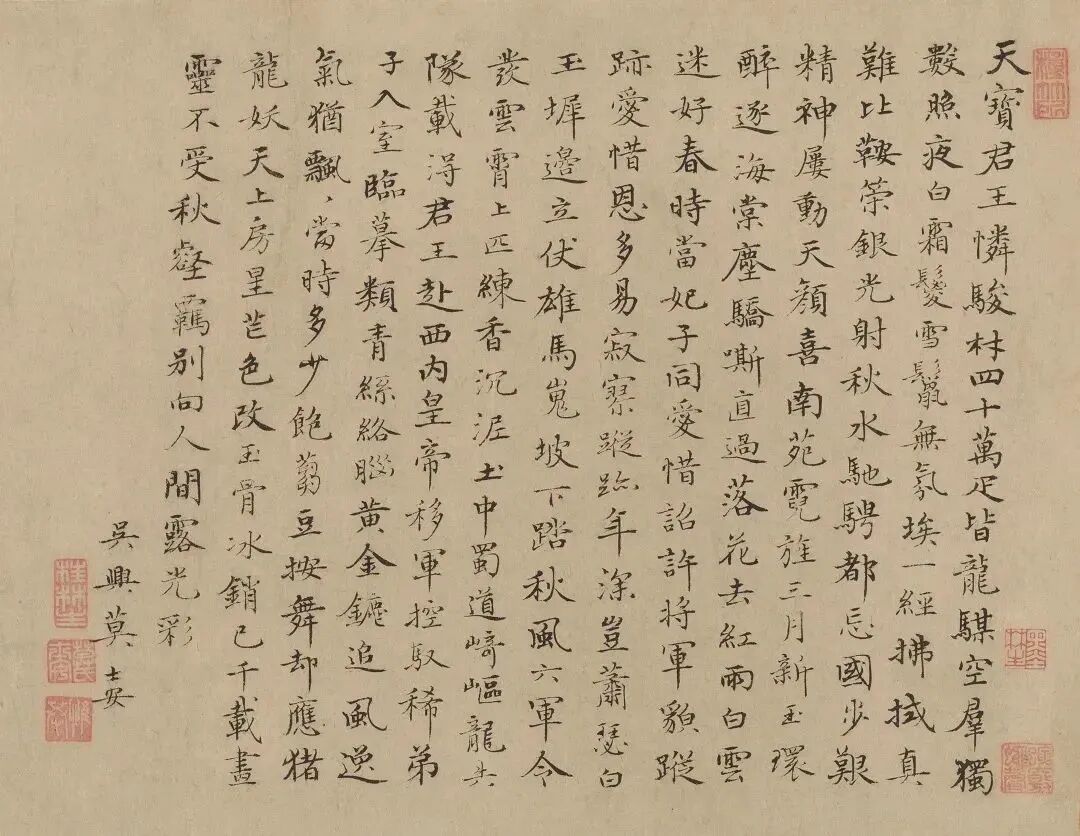 天寶君王憐駿材四十萬疋皆龍騋空羣獨
數照夜白霜鬉雪鬛無氛埃一經拂拭真
難比鞍荣銀光射秋水馳騁都忘國步艱
精神屢動天顏喜南苑霓旌三月新玉環
醉逐海棠塵驕嘶直過落花去紅雨白雲
迷好春時當妃子同愛惜詔許將軍貌蹤
跡愛惜恩多易寂寥蹤跡年深豈蕭瑟白
玉墀邊立伏雄馬嵬坡下踏秋風六軍令
發雲霄上匹練香沉泥土中蜀道崎嶇龍共
隊載得君王赴西內皇帝移軍控馭稀弟
子入室臨摹類青絲絡腦黃金鑣追風逆
氣猶飄、當時多少飽蒭豆按舞却應猪
龍妖天上房星芒色改玉骨冰銷已千載畫
靈不受秋壑羈别向人間露光彩
吳興莫士安